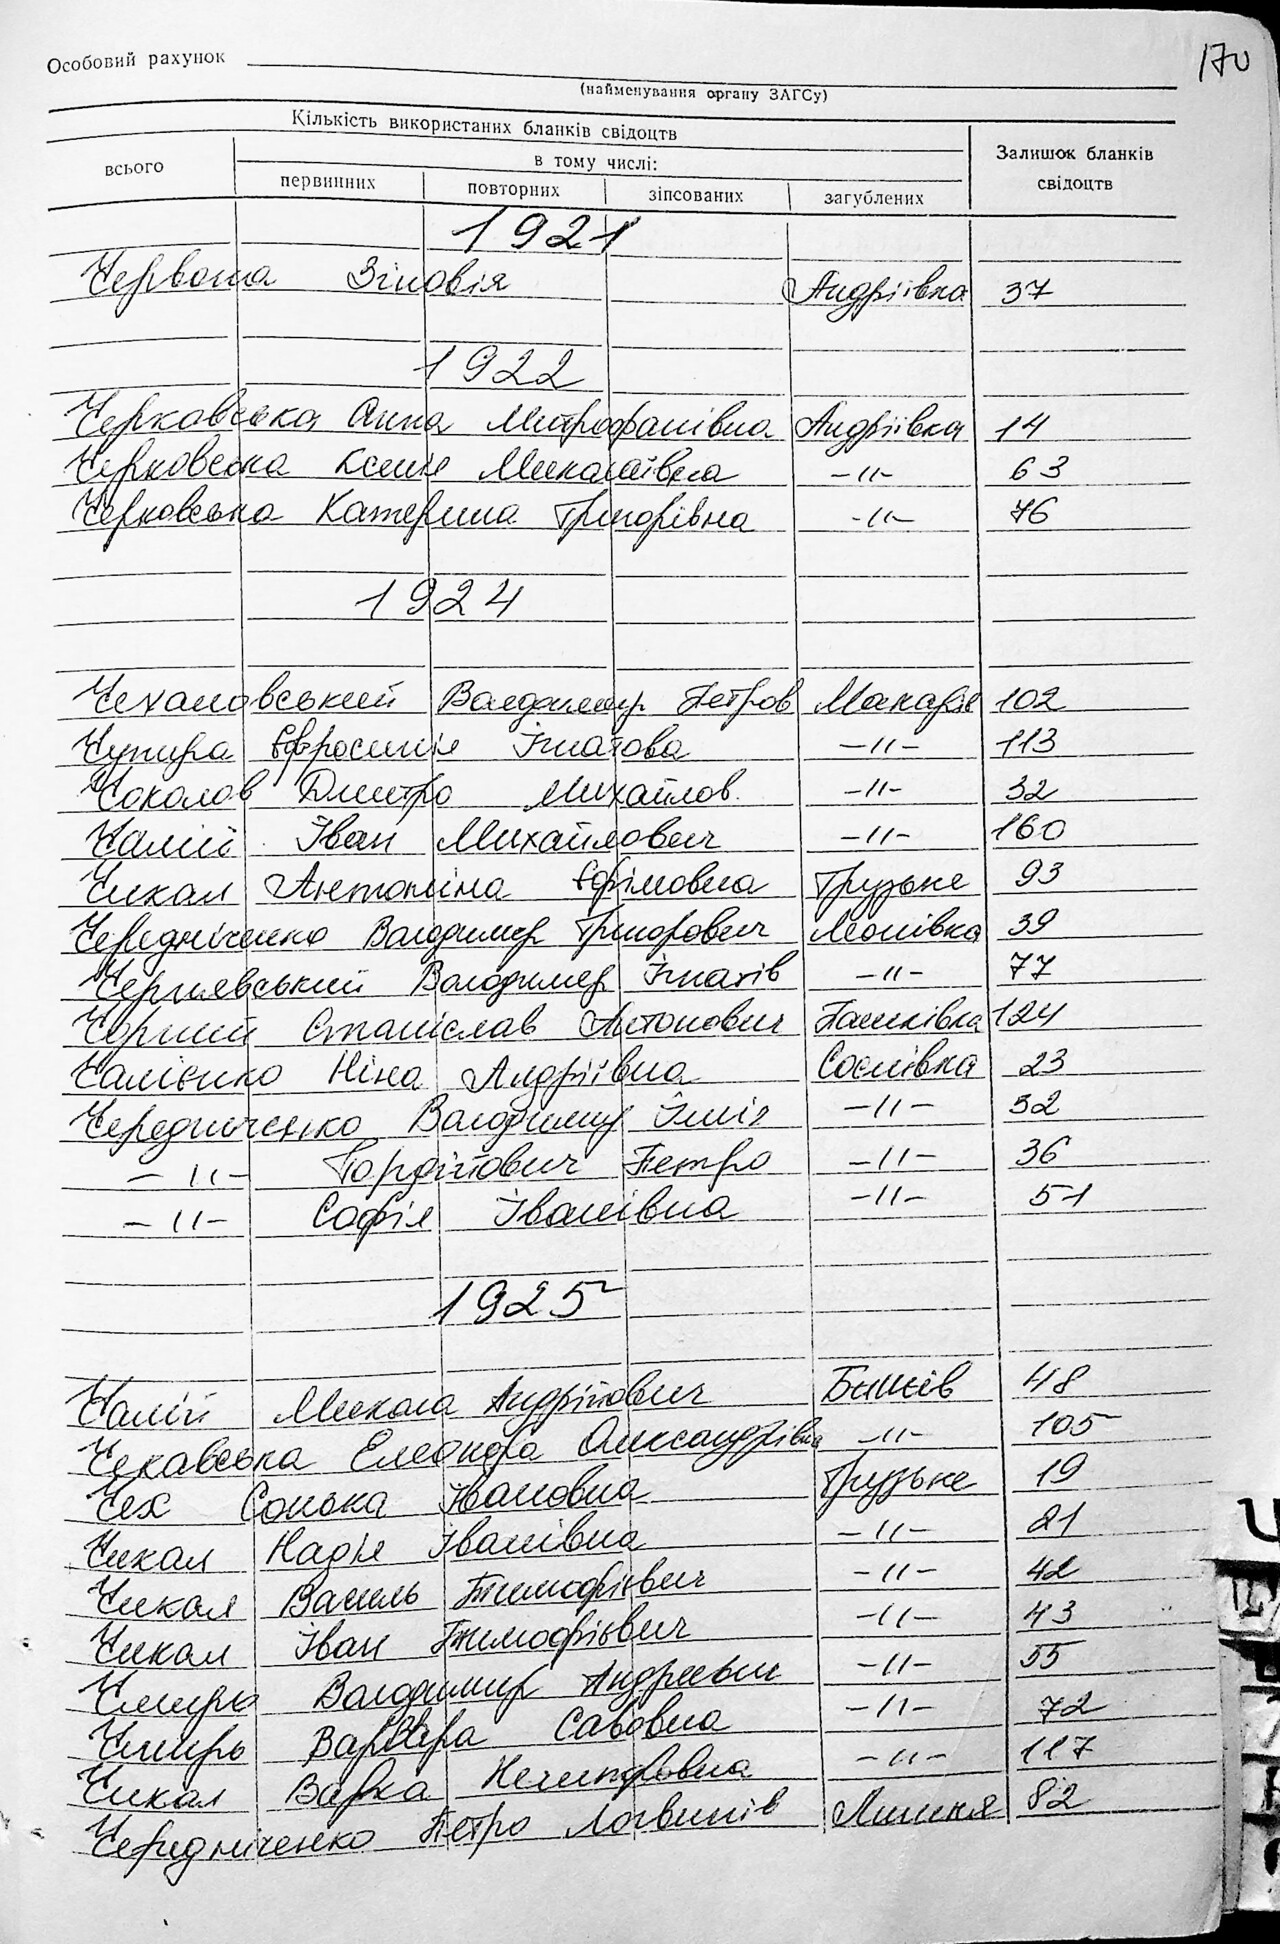 170
Особовий рахунок
(найменування органу ЗАГСу)
Кількість використаних бланків свідоцтв
Залишок бланків свідоцтв
всього
в тому числі:
первинних повторних зіпсованих загублених
1921
Червона Зіновія Андріївка 37
1922
Черкавська Анна Митрофанівна Андріївка 14
Черковська Ксенія Миколаївна -"- 63
Черковська Катерина Григорівна -"- 76
1924
Чехановський Володимир Петров Макарів 102
Чупира Єфросинія Ігнатова -"- 113
Чоколов Дмитро Михайлов. -"- 32
Чалий Іван Михайлович -"- 160
Чикал Антоніна Єфімовна Грузьке 93
Чередніченко Володимир Григорович Мотівка 39
Чернявський Володимер Ігнатів -"- 77
Чорний Станіслав Антонович Пашківка 124
Чалієнко Ніна Андріївна Соснівка 23
Чередниченко Володимир Ілліч -"- 32
-"- Гордійович Петро -"- 36
-"- Софія Іванівна -"- 51
1925
Чалий Микола Андрійович Бишів 48
Чехавська Елеонора Олександрівна -"- 105
Чех Сонька Івановна Грузьке 19
Чикал Надія Іванівна -"- 21
Чикал Василь Тимофієвич -"- 42
Чикал Іван Тимофієвич -"- 43
Володимир Андреевич -"- 55
Варвара Савовна -"- 72
Чикал Варка Нечипоровна -"- 117
Чередніченко Петро Логвинів 82